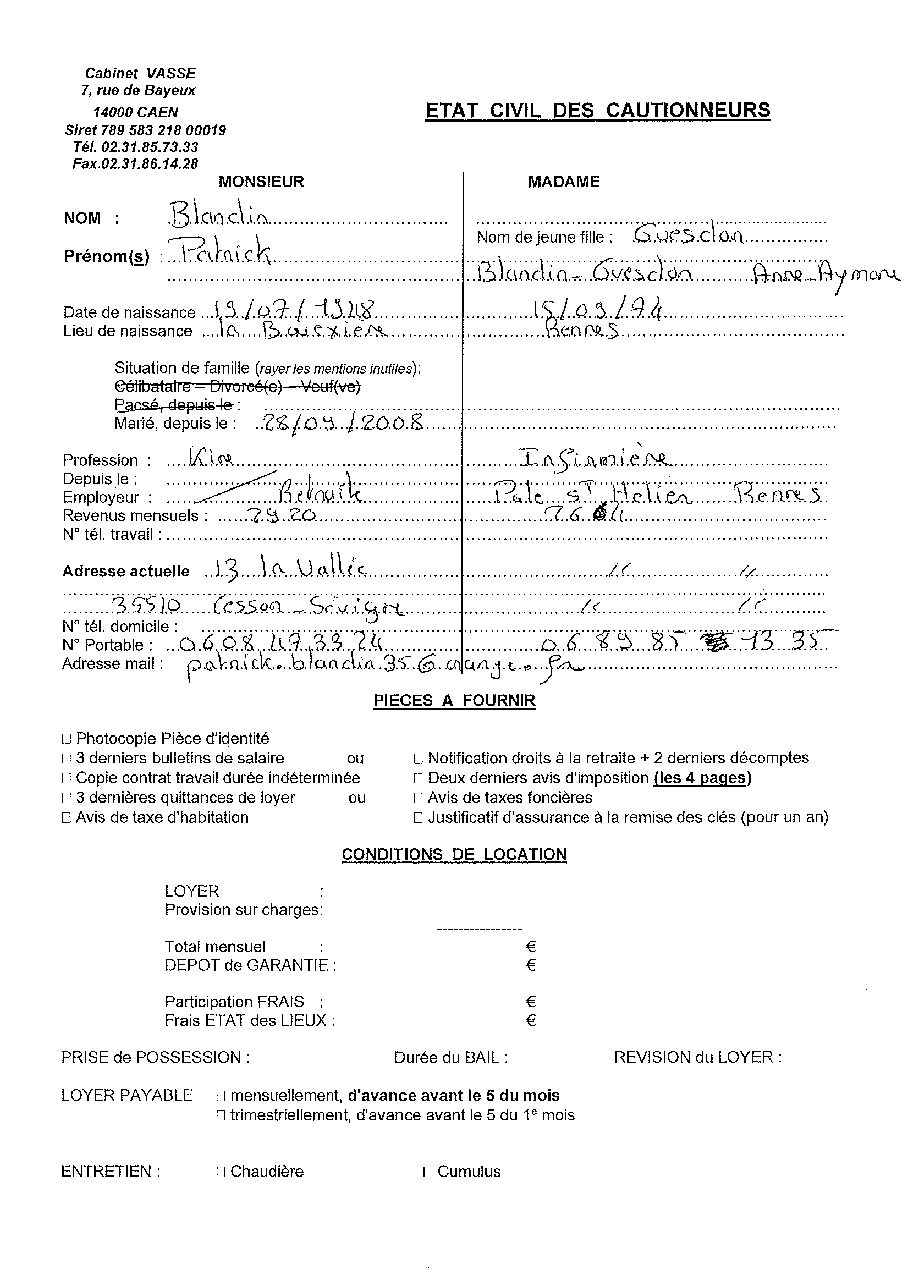 Cabinet VASSE
7, rue de Bayeux
14000 CAEN
Siret 789 583 218 00019
Tél. 02.31.85.73.33
Fax.02.31.86.14.28
ETAT CIVIL DES CAUTIONNEURS
MONSIEUR MADAME
NOM : Blandin
Nom de jeune fille : Guesclan
Prénom(s) : Patrick
Blandin - Guesclan Anne Aymone
Date de naissance 19/07/1948 15/09/74
Lieu de naissance la Rennes
Situation de famille (rayer les mentions inutiles):
Célibataire – Divorcé(e) – Veuf(ve)
Pacsé, depuis le :
Marié, depuis le : 28/09/2008
Profession : Kiné Infirmière
Depuis le :
Employeur : Retraite Pole St Helier Rennes
Revenus mensuels : 2920
N° tél. travail :
Adresse actuelle 13 la Vallée // //
35510 Cesson-Sévigné // //
N° tél. domicile :
N° Portable : 06.08.47.33.24 06 89 85 13 35
Adresse mail : patrick.blandin35@orange.fr
PIECES A FOURNIR
□ Photocopie Pièce d'identité
□ 3 derniers bulletins de salaire ou □ Notification droits à la retraite + 2 derniers décomptes
□ Copie contrat travail durée indéterminée □ Deux derniers avis d'imposition (les 4 pages)
□ 3 dernières quittances de loyer ou □ Avis de taxes foncières
□ Avis de taxe d'habitation □ Justificatif d'assurance à la remise des clés (pour un an)
CONDITIONS DE LOCATION
LOYER :
Provision sur charges:
----------------
Total mensuel : €
DEPOT de GARANTIE : €
Participation FRAIS : €
Frais ETAT des LIEUX : €
PRISE de POSSESSION : Durée du BAIL : REVISION du LOYER :
LOYER PAYABLE : □ mensuellement, d'avance avant le 5 du mois
□ trimestriellement, d'avance avant le 5 du 1e mois
ENTRETIEN : □ Chaudière □ Cumulus